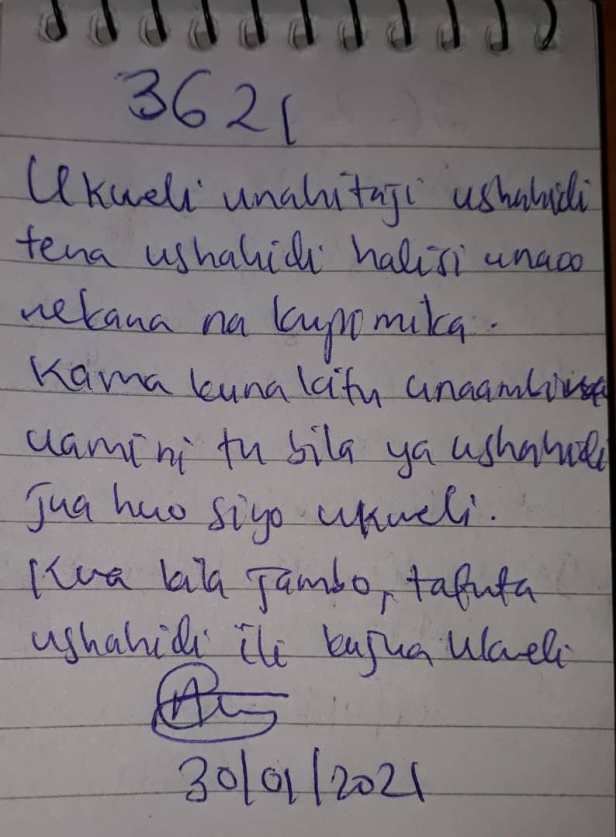 3621
Ukweli unahitaji ushahidi
tena ushahidi halisi unaoo
nekana na kupimika.
Kama kuna kitu unaambiwa
uamini tu bila ya ushahidi
Jua huo siyo ukweli.
Kwa kila Jambo, tafuta
ushahidi ili kujua Ukweli
30/01/2021